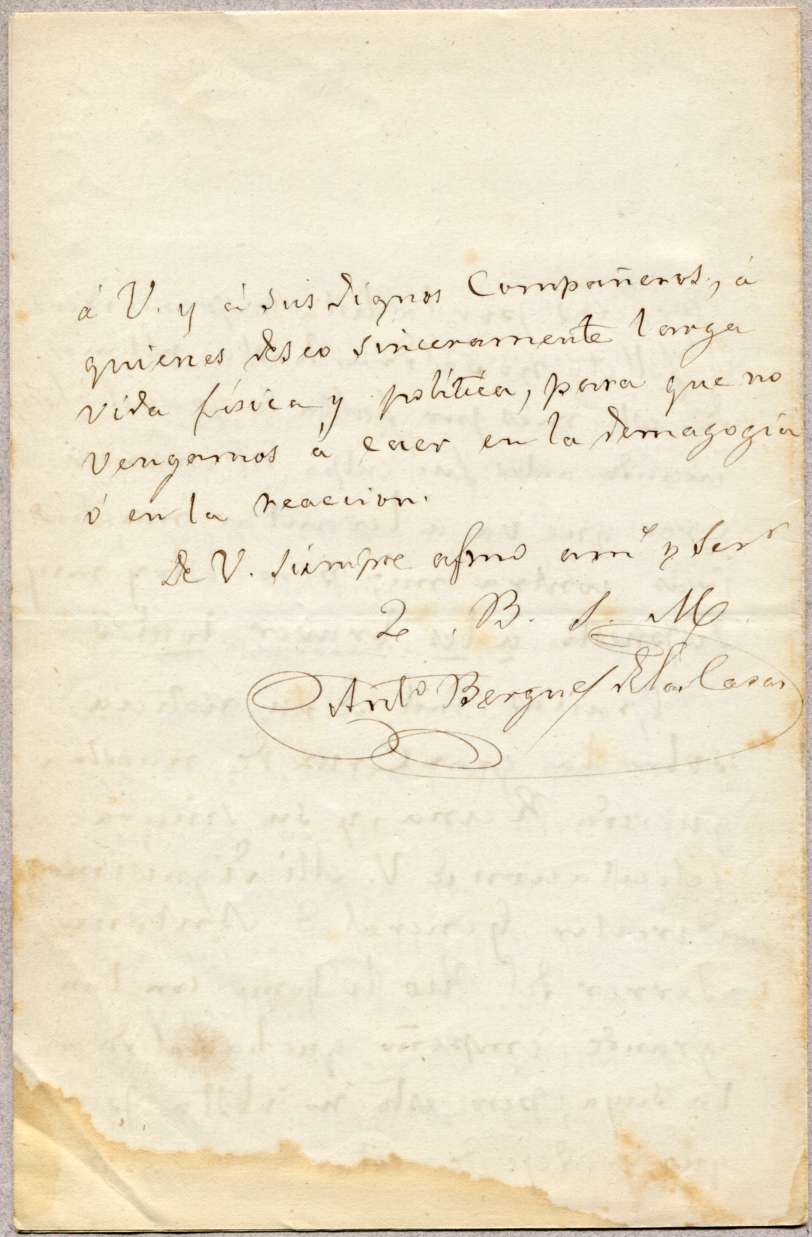 á V. y á sus dignos Compañeros, á
quiénes deseo sinceramente larga
vida física y política, para que no
vengamos á caer en la demagogia
ó en la reaccion.
De V. siempre afmo amº y Serr
Q. B. S. M.
Antº Bergnes de las Casas